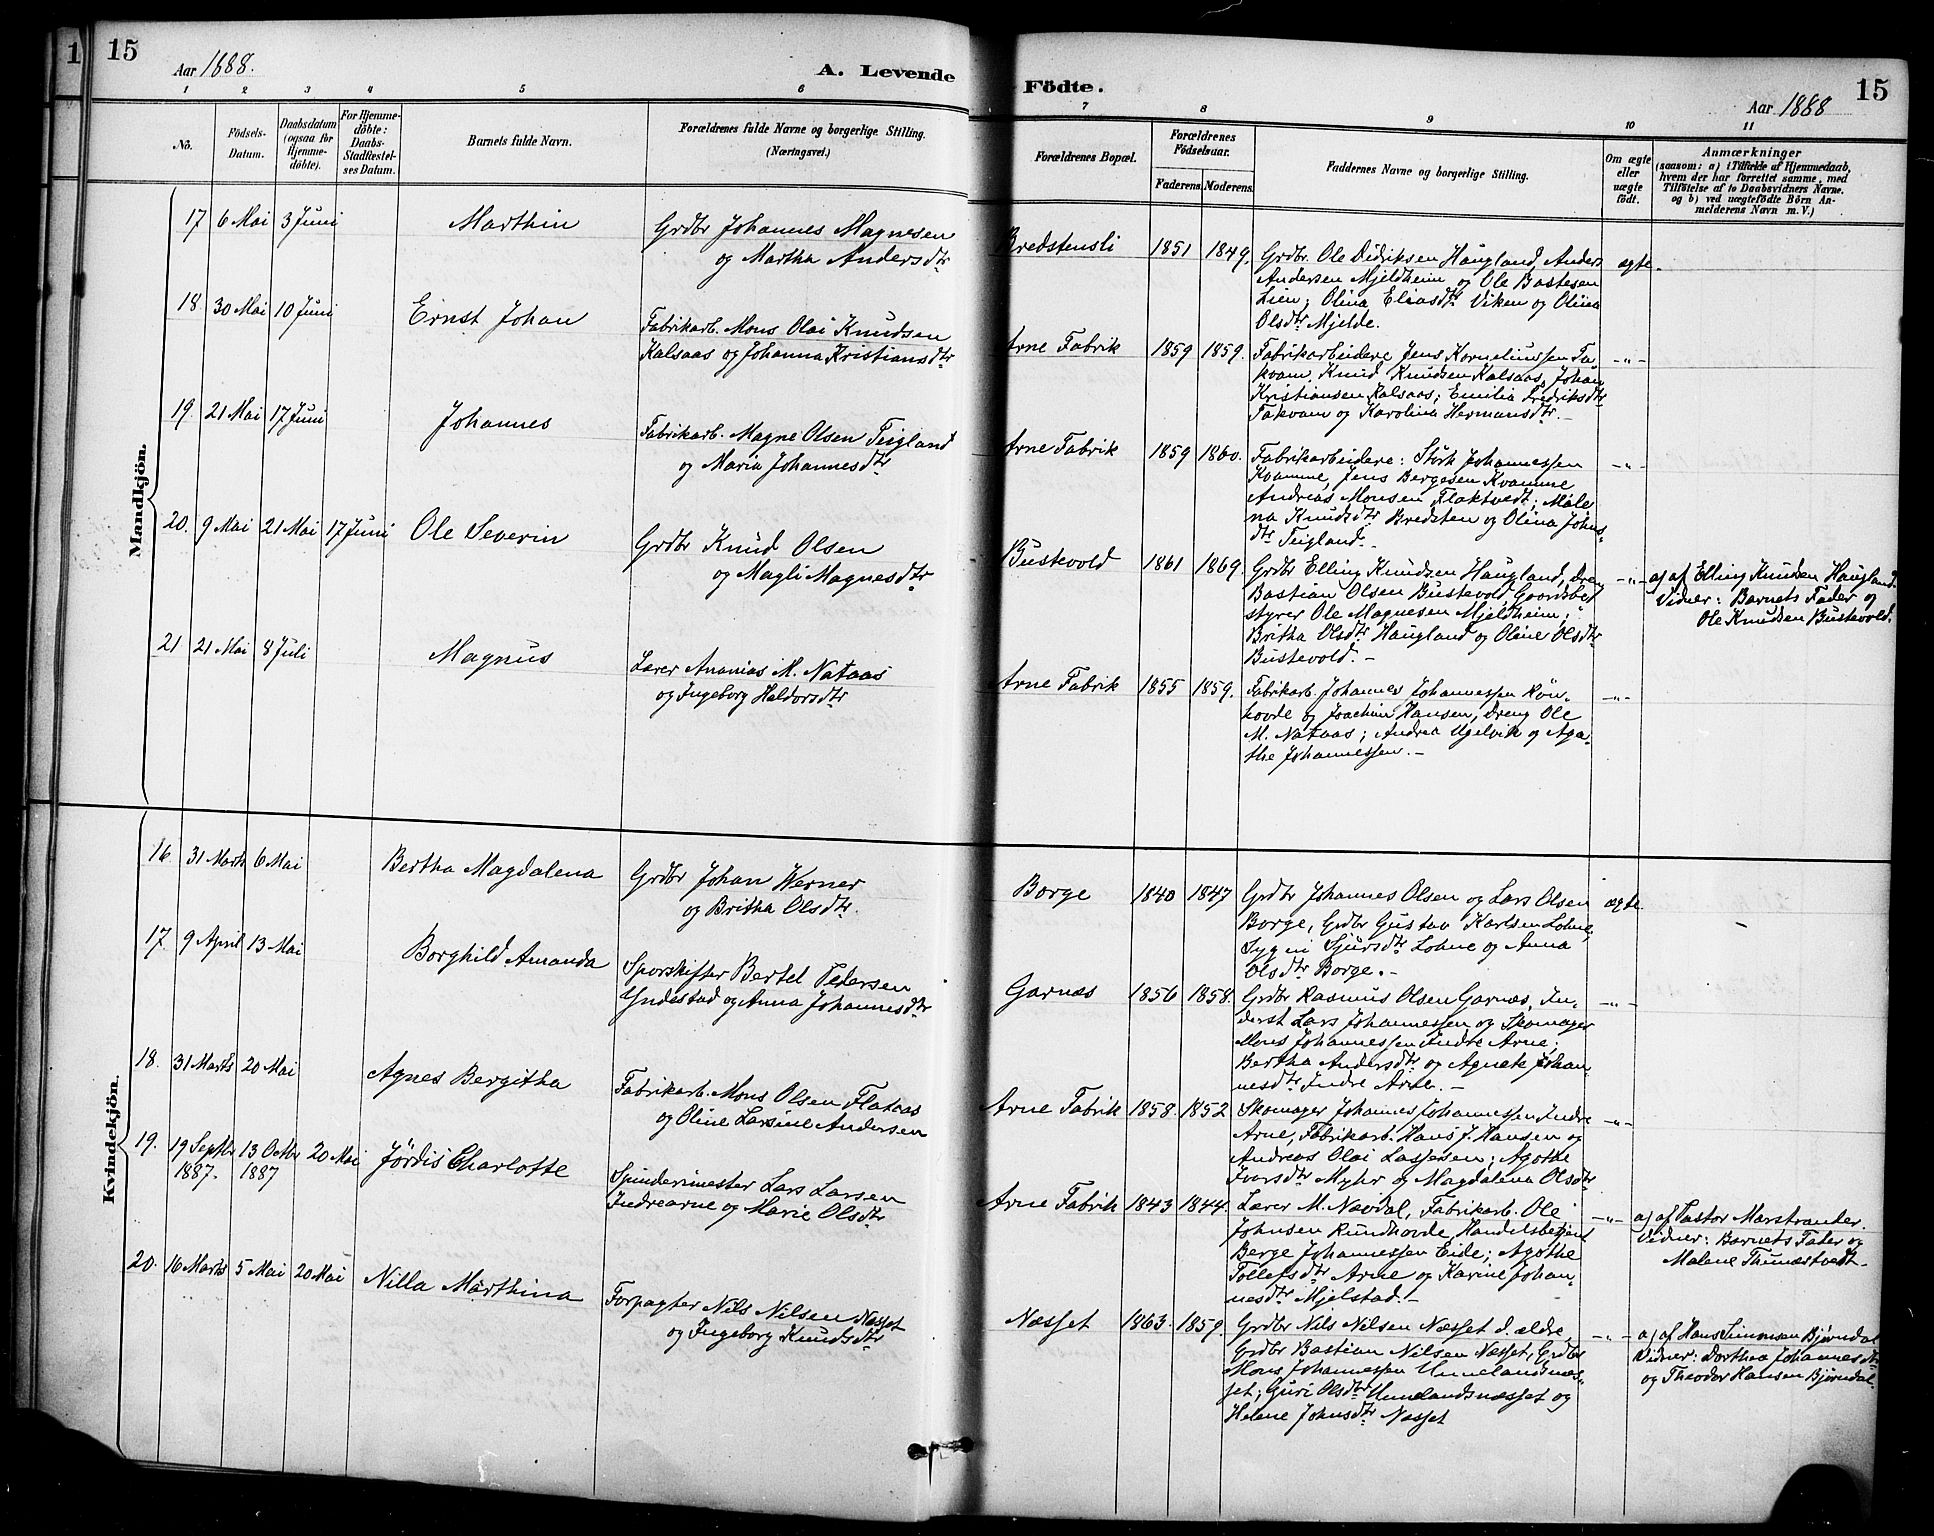 15
Aar 1888.
A. Levende
1 2 3 4 5 6
No.
Födsels-
Datum.
Daabsdatum
(ogsaa for
Hjemme-
døbte).
For Hjemme-
döbte:
Daabs-
Stadfæstel-
ses Datum.
Barnets fulde Navn.
Forældrenes fulde Navne og borgerlige Stilling.
(Næringsvei.)
Mandkjön.
17 6 Mai 3 Juni Marthin Grdbr Johannes Magnesen
og Martha Andersdtr
18. 30 Mai 10 Juni Ernst Johan Fabrikarb. Mons Olai Knudsen
Kalsaas og Johanna Kristiansdtr
19. 21 Mai 17 Juni Johannes Fabrikarb. Magne Olsen Teigland
og Maria Johannesdtr
20. 9 Mai 21 Mai 17 Juni Ole Severin Grdbr Knud Olsen
og Magli Magnesdtr
21 21 Mai 8 Juli Magnus Lærer Ananias M. Nataas
og Ingeborg Haldorsdtr
Kvindekjön.
16 31 Marts 6 Mai Bertha Magdalena Grdbr Johan Werner
og Britha Olsdtr.
17. 9 April 13 Mai Borghild Amanda Sporskifter Bertel Pedersen
Yndestad og Anna Johannesdtr
18. 31 Marts 20 Mai Agnes Bergitha Fabrikarb. Mons Olsen Flataas
og Oline Larsine Andersen
19. 19 Septbr 13 Octbr 20 Mai Jördis Charlotte Spindermester Lars Larsen
1887. 1887 Indrearne og Marie Olsdtr
20. 16 Marts 5 Mai 20 Mai Nilla Marthina Forpagter Nils Nilsen Næsset
og Ingeborg Knudsdtr
Födte.
15
Aar 1888
7 8 9 10 11
Forældrenes Bopæl.
Forældrenes
Födselsaar.
Faderens. Moderens.
Faddernes Navne og borgerlige Stilling.
Om ægte
eller
uægte
födt.
Anmærkninger
(saasom: a) i Tilfælde af Hjemmedaab,
hvem der har forrettet samme, med
Tilföielse af to Daabsvidners Navne.
og b) ved uægtefödte Börn An-
melderens Navn m. V.)
Bredstensli 1851 1849. Grdbr. Ole Didriksen Haugland, Anders ægte.
Andersen Mjeldheim og Ole Bastesen
Lien; Olina Eliasdtr Viken og Olina
Olsdtr Mjelde.
Arne Fabrik 1859 1859. Fabrikarbeidere Jens Korneliussen Ta- -"-
kvam, Knud Knudsen Kalsaas, Johan
Kristiansen Kalsaas; Emilia Fredriksdtr
Takvam og Karolina Hermansdtr. -
Arne Fabrik 1859 1860. Fabrikarbeidere: Störk Johannessen -"-
Kvamme, Jens Bergesen Kvamme
Andreas Monsen Flaktvedt; Male-
na Knudsdtr Bredsten og Olina Johns-
dtr Teigland. -
Bustevold 1861 1869. Grdbr Elling Knudsen Haugland, dreng -"- a) af Elling Knudsen Haugland.
Bastian Olsen Bustevold Gaardsbe- Vidner: Barnets Fader og
styrer Ole Magnesen Mjeldheim; Ole Knudsen Bustevold.
Britha Olsdtr Haugland og Oline Olsdtr
Bustevold. -
Arne Fabrik 1855 1859. Fabrikarb. Johannes Johannessen Rön- -"-
hovde og Joachim Hansen, dreng Ole
M. Nataas; Andrea Ugelvik og Aga-
the Johannessen. -
Borge 1840 1847 Grdbr Johannes Olsen og Lars Olsen ægte.
Borge, Grdbr Gustav Karlsen Lohne,
Sygni Sjursdtr Lohne og Anna
Olsdtr Borge. -
Garnæs 1856 1858. Grdbr Rasmus Olsen Garnæs, In- -"-
derst Lars Johannessen og Skomager
Mons Johannessen Indre Arne;
Bertha Andersdtr og Agnete Johan-
nesdtr Indre Arne. -
Arne Fabrik 1858. 1852 Skomager Johannes Johannessen Indre -"-
Arne, Fabrikarb. Hans J. Hansen og
Andreas Olai Lassesen; Agothe
Iversdtr Myhr og Magdalena Olsdtr
Arne Fabrik 1843 1844. Lærer M. Nævdal, Fabrikarb. Ole -"- a) af Pastor Marstrander.
Johnsen Rundhovde, Handelsbetjent Vidner: Barnets Fader og
Berge Johannessen Eide; Agothe Malene Thunæstvedt.
Tollefsdtr Arne og Karine Johan-
nesdtr Mjelstad. -
Næsset 1863. 1859. Grdbr Nils Nilsen Næsset d. ældre, -"- a) af Hans Simonsen Bjørndal
Grdbr Bastian Nilsen Næsset, Grdbr Vidner: Dorthea Johannesdtr
Mons Johannessen Unnelandsnæs- og Theodor Hansen Bjørndal.
set; Guri Olsdtr Unnelandsnæsset og
Helene Johnsdtr Næsset